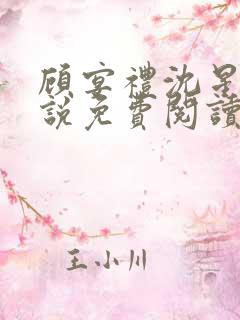 顧宴禮沈星
說免費閱讀
王小川